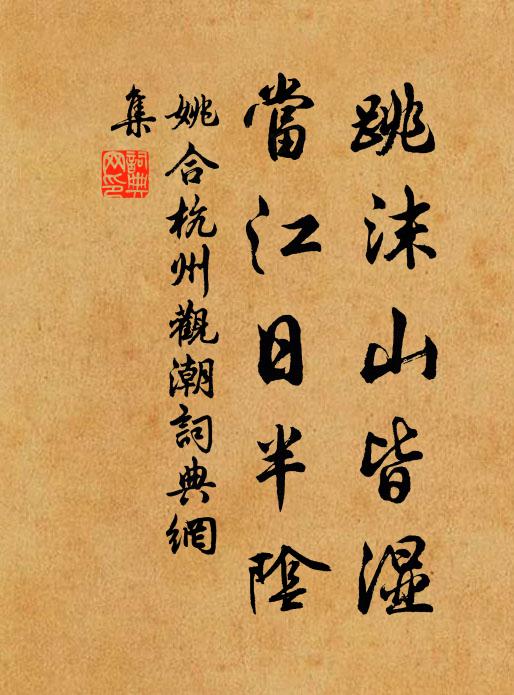 跳沫山皆濕
當江日半陰
姚合杭州觀潮詞典網
集
詞典
网印